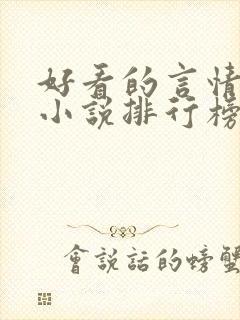 好看的言情
小说排行榜
會説話的螃蟹